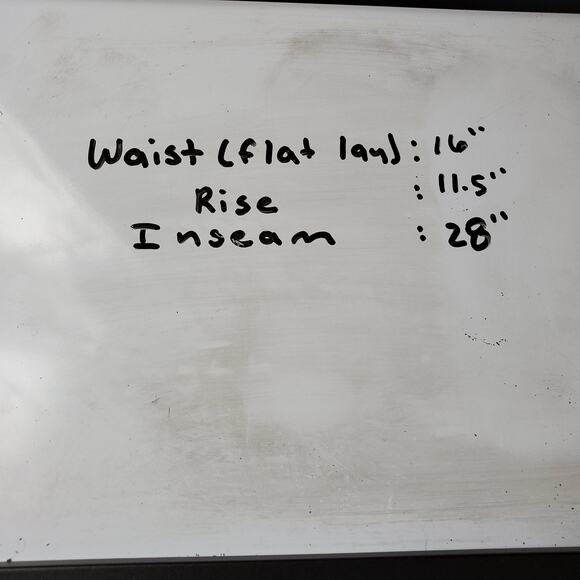 Waist (flat lay): 16"
Rise : 11.5"
Inseam : 28"